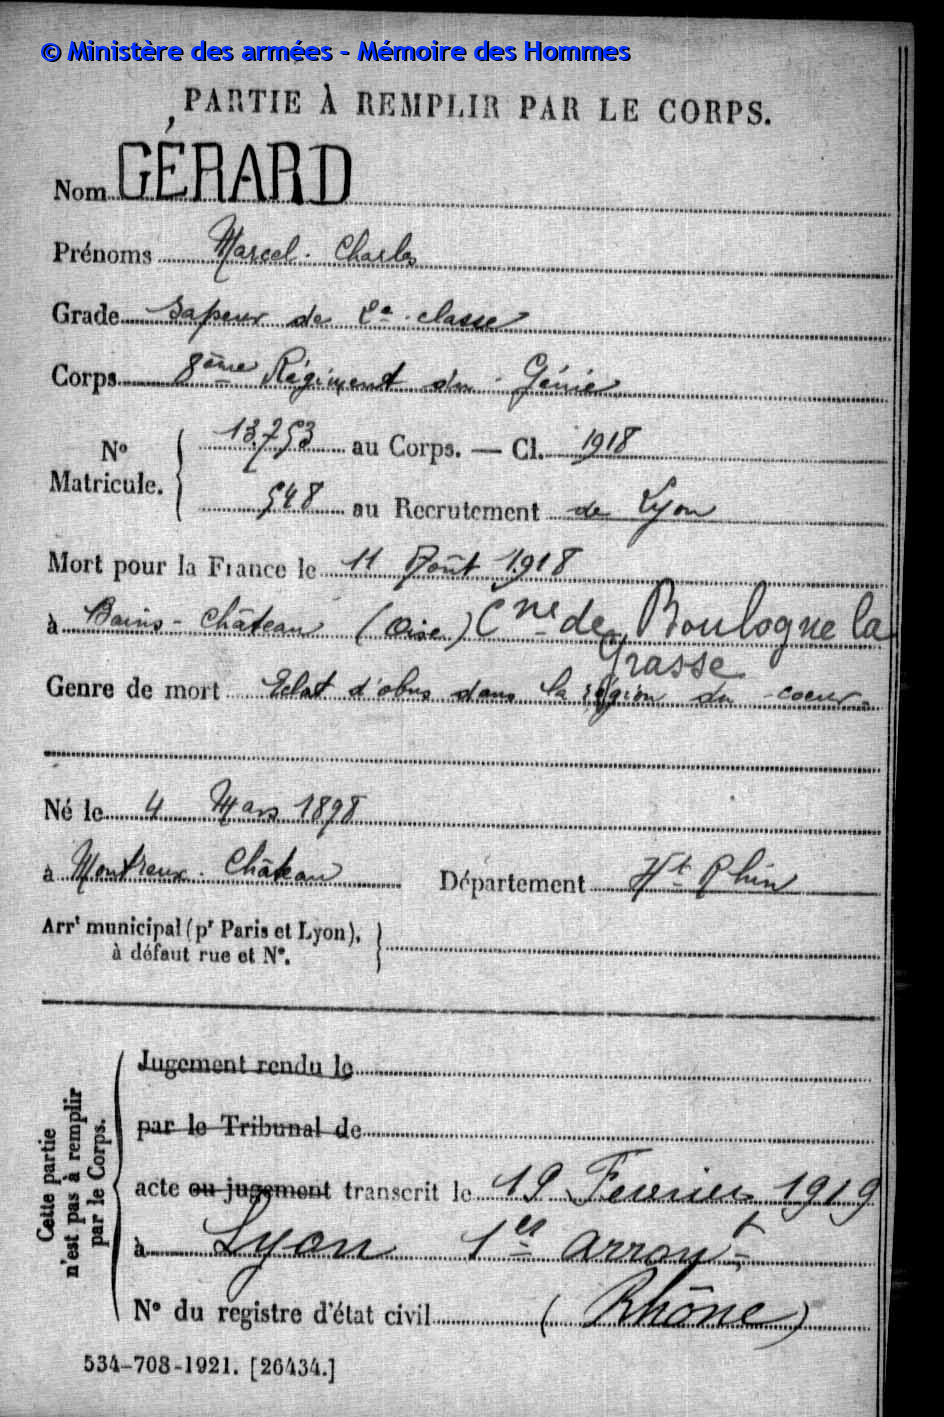 © Ministère des armées - Mémoire des Hommes
PARTIE À REMPLIR PAR LE CORPS.
Nom GÉRARD
Prénoms Marcel. Charles
Grade Sapeur de 2e classe
Corps 8ème Régiment du Génie
N° Matricule. 13.753 au Corps. — Cl. 1918
548 au Recrutement de Lyon
Mort pour la France le 11 Août 1918
à Bains-Château (Oise) Cne de Boulogne la Grasse
Genre de mort Eclat d'obus dans la région du coeur
Né le 4 Mars 1898
à Montreux-Château Département Ht Rhin
Arrt municipal (pr Paris et Lyon),
à défaut rue et N°.
Cette partie
n'est pas à remplir
par le Corps.
Jugement rendu le
par le Tribunal de
acte ou jugement transcrit le 19 Fevrier 1919
à Lyon 1er arront
N° du registre d'état civil (Rhône)
534-708-1921. [26434.]